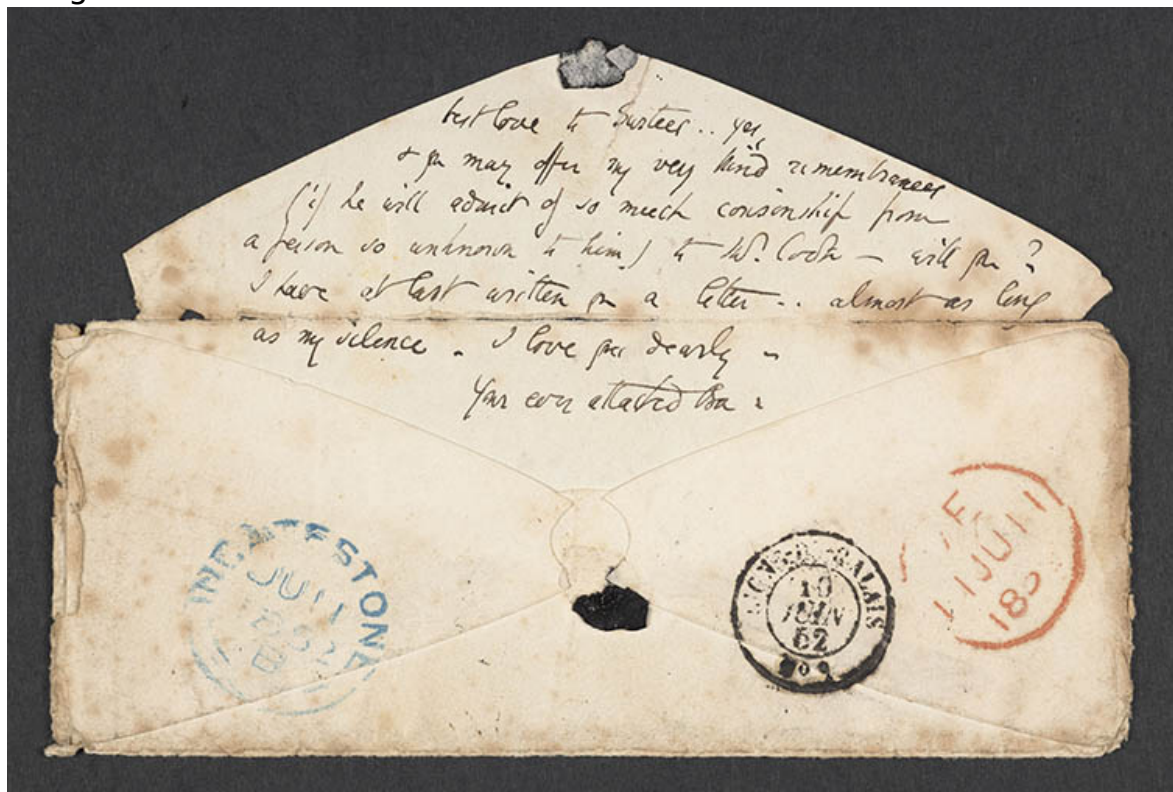 best love to .. yes,
& you may offer my very kind remembrances
(if he will admit of so much cousinship from
a person so unknown to him) to Mr. Cook – will you?
I have at last written you a letter .. almost as long
as my silence . I love you dearly –
Your ever attached Ba –
INGATESTONE
JU 11
1852
LIGNE-DE-CALAIS
10
JUIN
52
11 JU 11
18